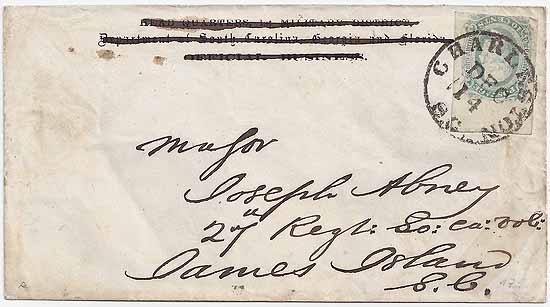 HEAD QUARTERS 1st MILITARY DISTRICT,
Department of South Carolina, Georgia and Florida,
OFFICIAL BUSINESS.
CHARLESTON S.C.
DEC
14
Major
Joseph Abney
27th Regt: So: Ca: Vol:
James Island
S.C.